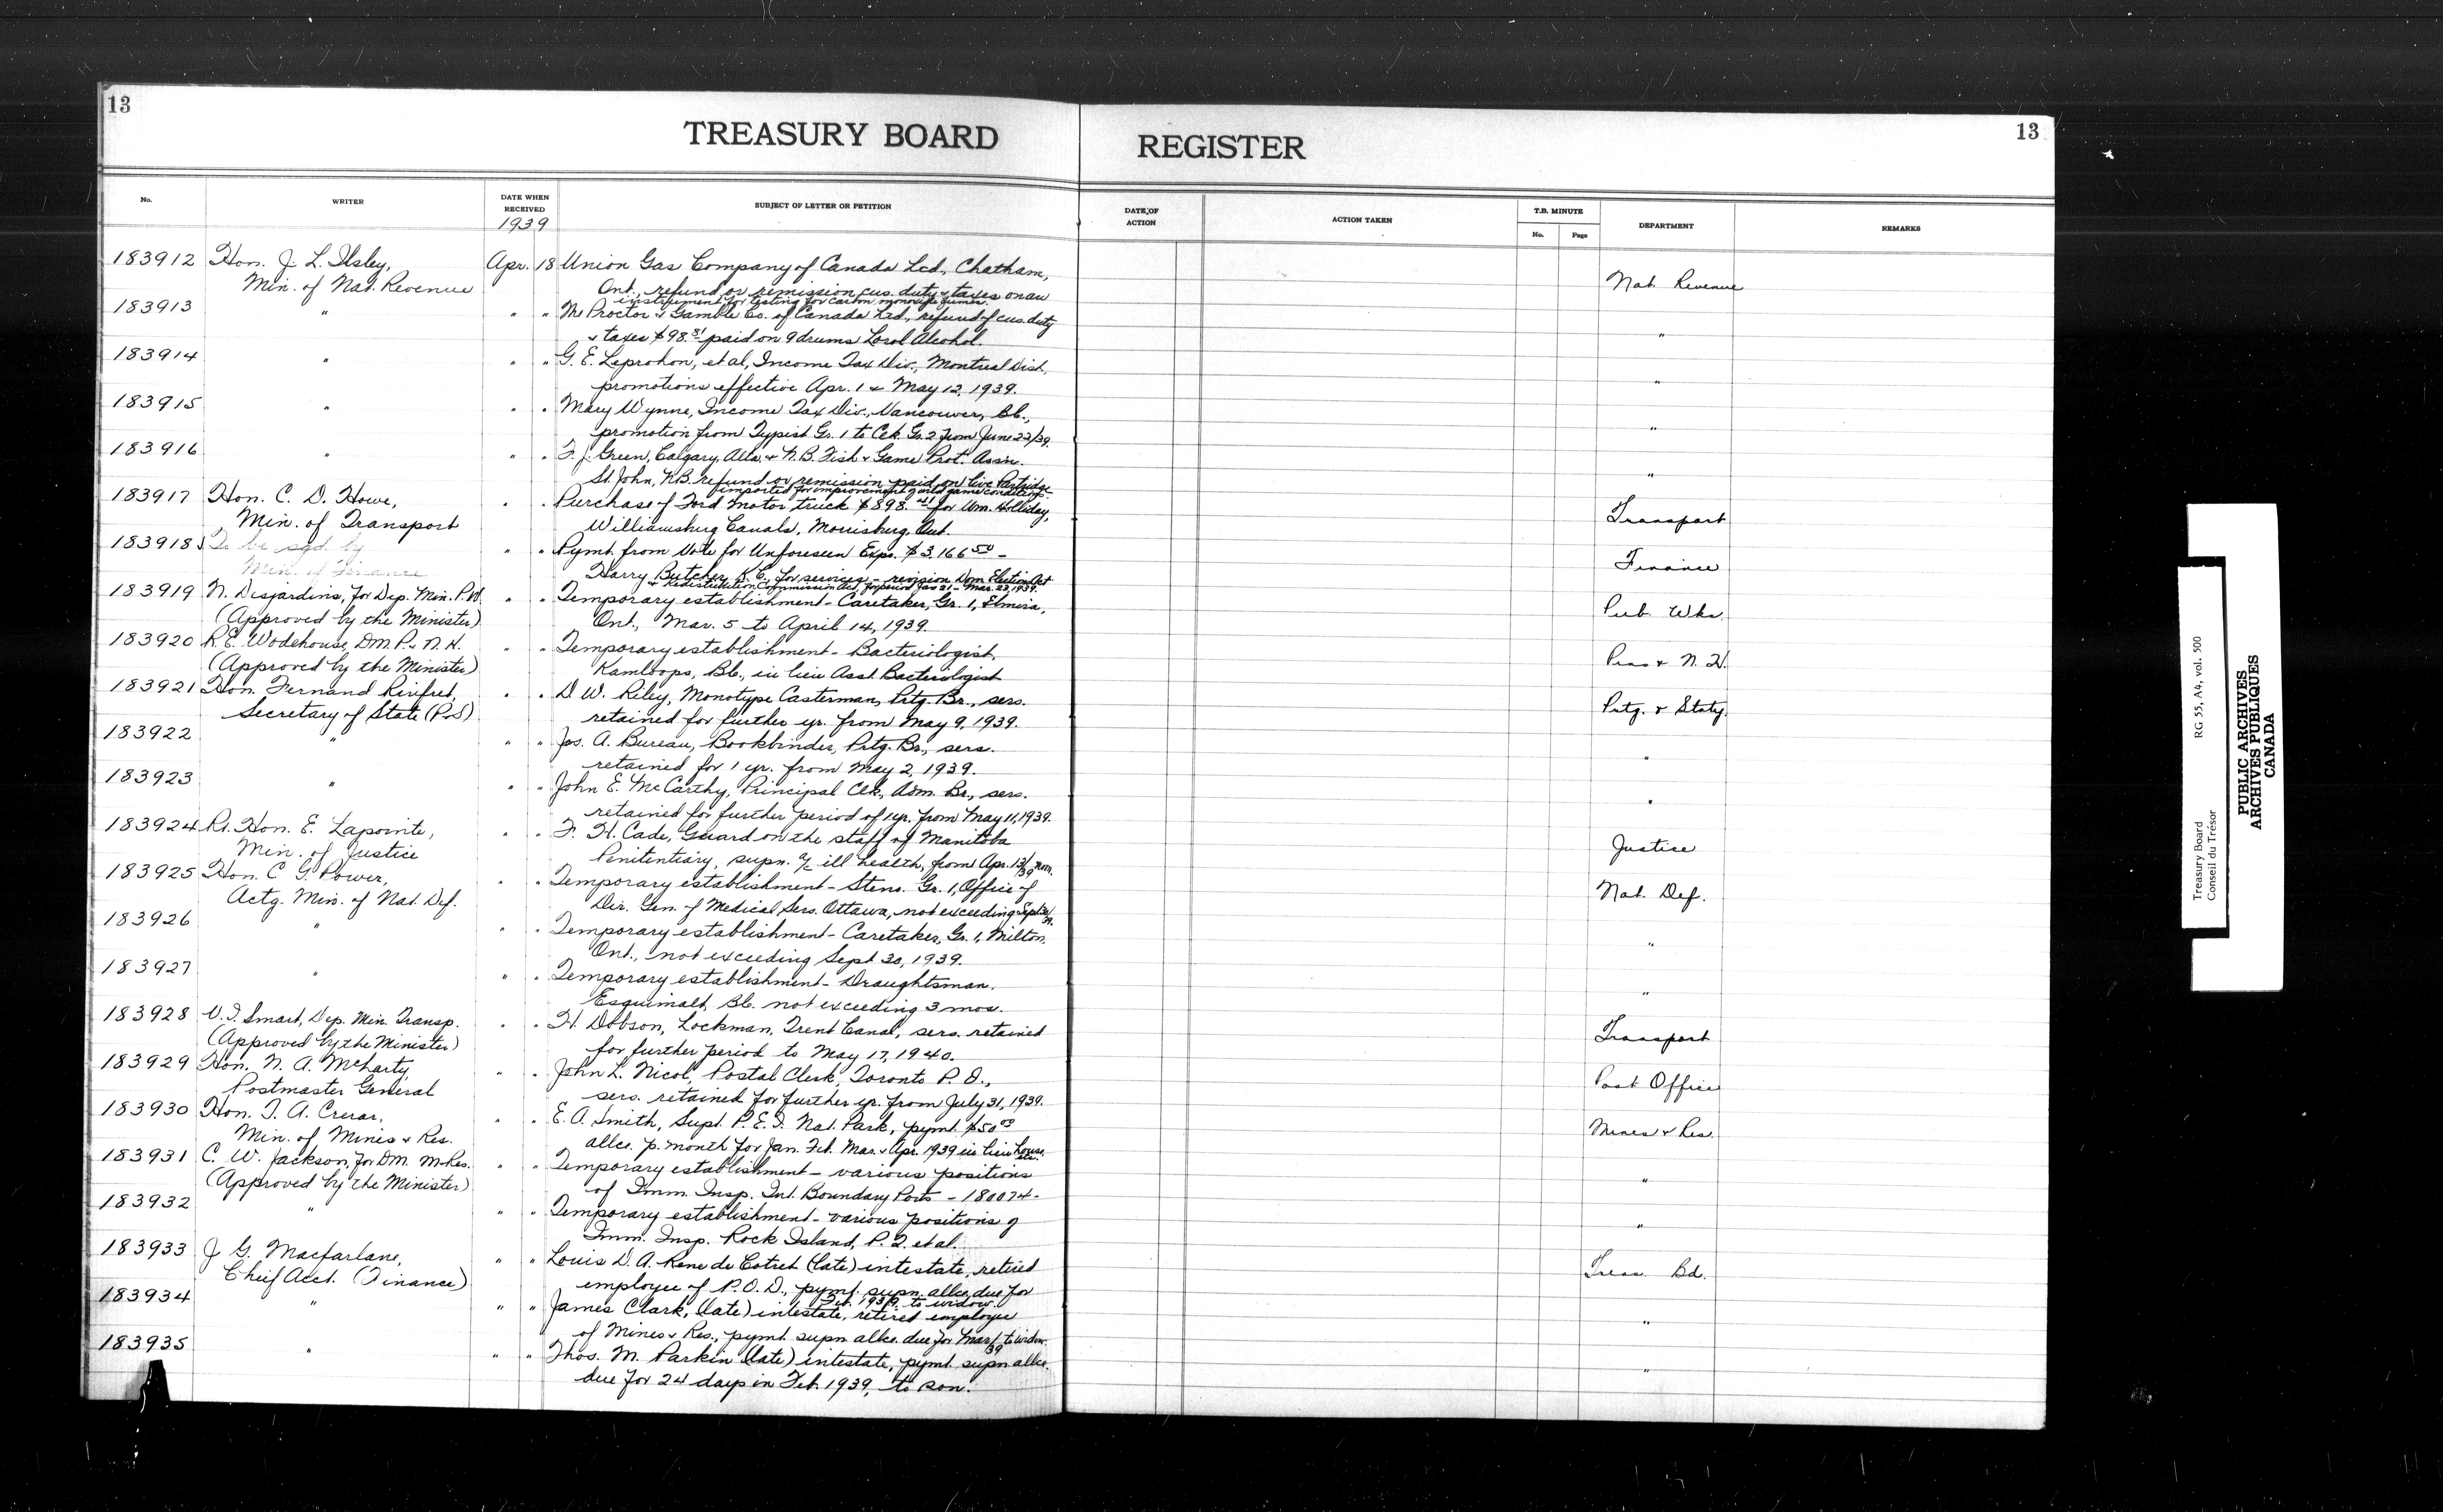 13
TREASURY BOARD
REGISTER
13
No.
WRITER
DATE WHEN RECEIVED
1939
SUBJECT OF LETTER OR PETITION
DATE OF ACTION
ACTION TAKEN
T.B. MINUTE
No.
Page
DEPARTMENT
REMARKS
183912 Hon. J. L. Ilsley, Apr. 18 Union Gas Company of Canada Ltd., Chatham,
Min. of Nat. Revenue Ont., refund or remission cus. duty & taxes on an Nat Revenue
instrument for testing for carbon monoxide fumes.
183913 " " " The Proctor & Gamble Co. of Canada Ltd., refund of cus. duty
& taxes $98.81 paid on 9 drums Lorol Alcohol. "
183914 " " " G. E. Leprohon, et al, Income Tax Div., Montreal Dist.,
promotions effective Apr. 1 & May 12, 1939. "
183915 " " " Mary Wynne, Income Tax Div., Vancouver, B.C.,
promotion from Typist Gr. 1 to Clk. Gr. 2 from June 22/39. "
183916 " " " F. J. Green, Calgary, Alta. & N.B. Fish & Game Prot. Ass'n.
St. John, N.B. refund or remission paid on live Partridge "
imported for improvement of wild game conditions
183917 Hon. C. D. Howe, " " Purchase of Ford motor truck $898.41 for Wm. Holliday,
Min. of Transport Williamsburg Canals, Morrisburg, Ont. Transport
183918 To be sgd. by " " Pymt. from Vote for Unforeseen Exps. $3,166.50 -
Min. of Finance Harry Butcher, K.C., for services - revision Dom. Election Act Finance
& Redistribution Commission Act for period Jan 21 - Mar. 22, 1939.
183919 N. Desjardins, for Dep. Min. P.W. " " Temporary establishment - Caretaker, Gr. 1, Elmira,
(Approved by the Minister) Ont., Mar. 5 to April 14, 1939. Pub. Wks.
183920 R. E. Wodehouse, D.M. P. & N. H. " " Temporary establishment - Bacteriologist,
(Approved by the Minister) Kamloops, B.C., in lieu Asst. Bacteriologist Pens & N. H.
183921 Hon. Fernand Rinfret, " " D. W. Riley, Monotype Casterman, Prtg. Br., sers.
Secretary of State (P&S) retained for further yr. from May 9, 1939. Prtg. & Staty.
183922 " " " Jos. A. Bureau, Bookbinder, Prtg. Br., sers.
retained for 1 yr. from May 2, 1939. "
183923 " " " John E. McCarthy, Principal Clk., Adm. Br., sers.
retained for further period of 1 yr. from May 11, 1939. "
183924 Rt. Hon. E. Lapointe, " " F. H. Cade, Guard on the staff of Manitoba
Min. of Justice Penitentiary, supn. a/c ill health, from Apr. 13/39 Justice
183925 Hon. C. G. Power, " " Temporary establishment - Steno. Gr. 1, Office of
Actg. Min. of Nat. Def. Dir. Gen. of Medical Sers. Ottawa, not exceeding Nat. Def.
183926 " " " Temporary establishment - Caretaker, Gr. 1, Milton,
Ont., not exceeding Sept 30, 1939. "
183927 " " " Temporary establishment - Draughtsman,
Esquimalt, B.C. not exceeding 3 mos. "
183928 V. I. Smart, Dep. Min. Transp. " " H. Dobson, Lockman, Trent Canal, sers. retained
(Approved by the Minister) for further period to May 17, 1940. Transport
183929 Hon. N. A. McLarty, " " John L. Nicol, Postal Clerk, Toronto P. O.,
Postmaster General sers. retained for further yr. from July 31, 1939. Post Office
183930 Hon. T. A. Crerar, " " E. A. Smith, Supt. P. E. I. Nat. Park, pymt. $50.00
Min. of Mines & Res. allce. p. month for Jan. Feb. Mar. & Apr. 1939 in lieu house Mines & Res.
183931 C. W. Jackson, for D.M. M&Res. " " Temporary establishment - various positions
(Approved by the Minister) of Imm. Insp. Int. Boundary Ports - 180074 - "
183932 " " " Temporary establishment - various positions of
Imm. Insp. Rock Island, P. Q. et al. "
183933 J. G. Macfarlane, " " Louis D. A. Rene de Cotret (late) intestate, retired
Chief Acct. (Finance) employee of P.O.D., pymt. supn. allce. due for Treas. Bd.
Feb. 1939, to widow.
183934 " " " James Clark, (late) intestate, retired employee
of Mines & Res., pymt. supn. allce. due for Mar/39 to widow. "
183935 " " " Thos. M. Parkin (late) intestate, pymt. supn. allce.
due for 24 days in Feb. 1939, to son. "
Treasury Board
Conseil du Trésor
RG 55, A4, vol. 500
PUBLIC ARCHIVES
ARCHIVES PUBLIQUES
CANADA